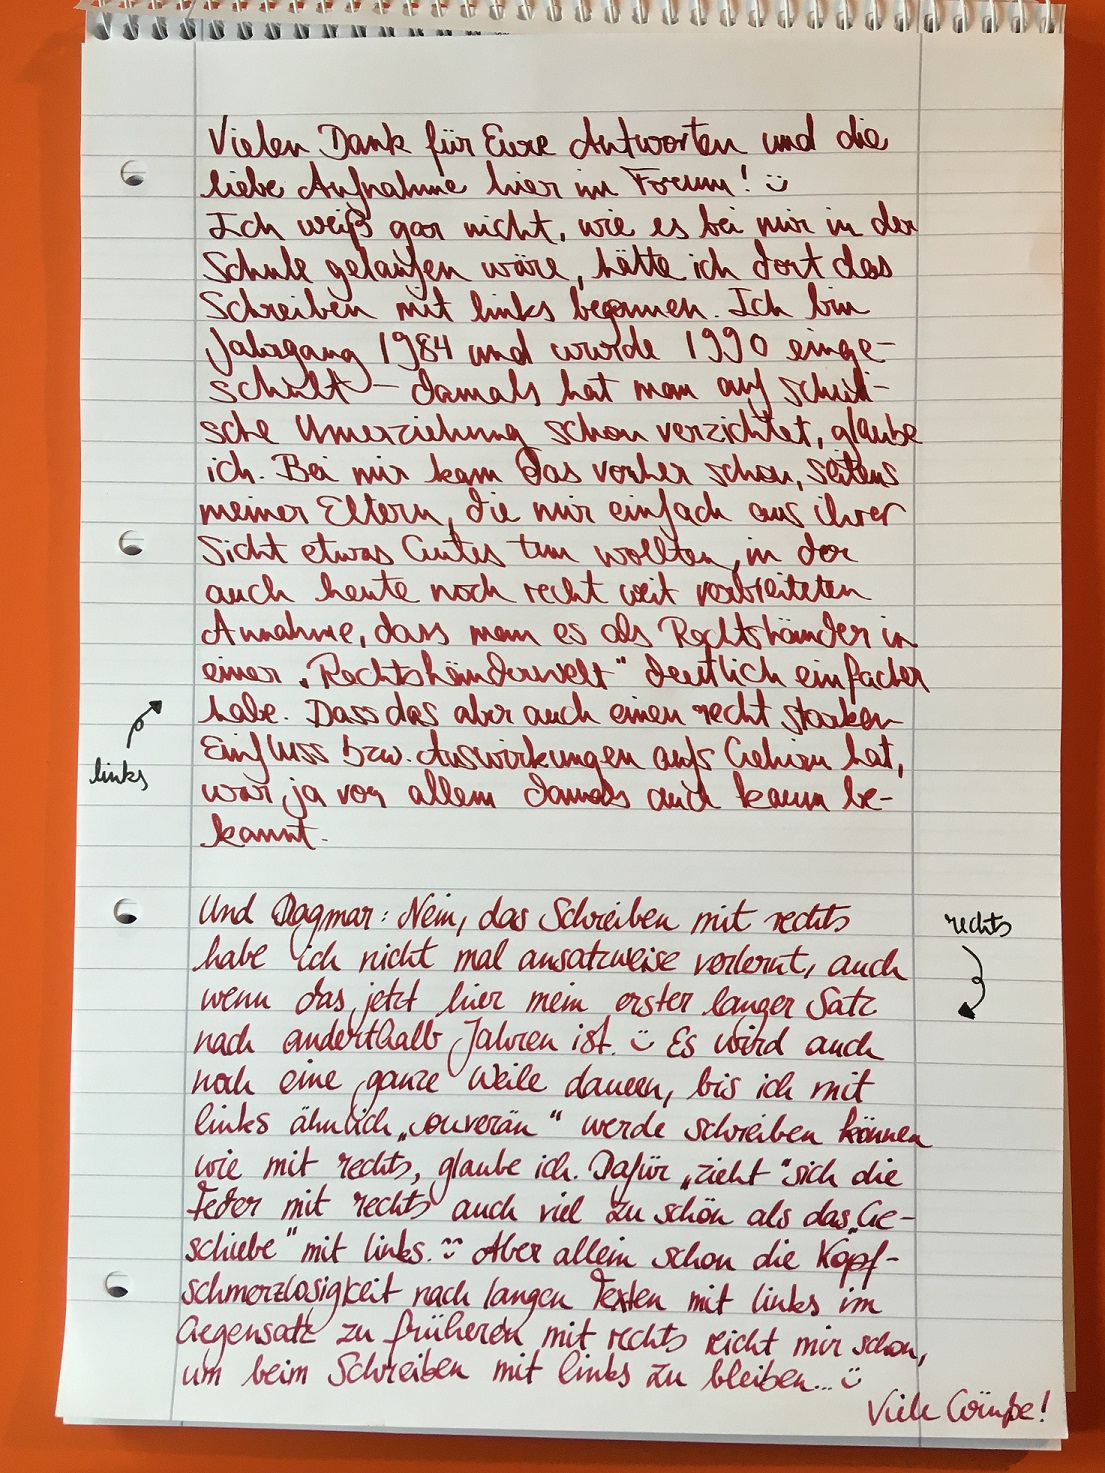 Vielen Dank für Eure Antworten und die
liebe Aufnahme hier im Forum! :)
Ich weiß gar nicht, wie es bei mir in der
Schule gelaufen wäre, hätte ich dort das
Schreiben mit links begonnen. Ich bin
Jahrgang 1984 und wurde 1990 einge-
schult – damals hat man auf schuli-
sche Umerziehung schon verzichtet, glaube
ich. Bei mir kam das vorher schon, seitens
meiner Eltern, die mir einfach aus ihrer
Sicht etwas Gutes tun wollten, in der
auch heute noch recht weit verbreiteten
Annahme, dass man es als Rechtshänder in
einer „Rechtshänderwelt" deutlich einfacher
habe. Dass das aber auch einen recht starken
Einfluss bzw. Auswirkungen aufs Gehirn hat,
war ja vor allem damals auch kaum be-
kannt.
links
Und Dagmar: Nein, das Schreiben mit rechts
habe ich nicht mal ansatzweise verlernt, auch
wenn das jetzt hier mein erster langer Satz
nach anderthalb Jahren ist. :) Es wird auch
noch eine ganze Weile dauern, bis ich mit
links ähnlich „souverän" werde schreiben können
wie mit rechts, glaube ich. Dafür „zieht" sich die
Feder mit rechts auch viel zu schön als das „Ge-
schiebe" mit links. :) Aber allein schon die Kopf-
schmerzlosigkeit nach langen Texten mit links im
Gegensatz zu früheren mit rechts reicht mir schon,
um beim Schreiben mit links zu bleiben... :)
Viele Grüße!
rechts